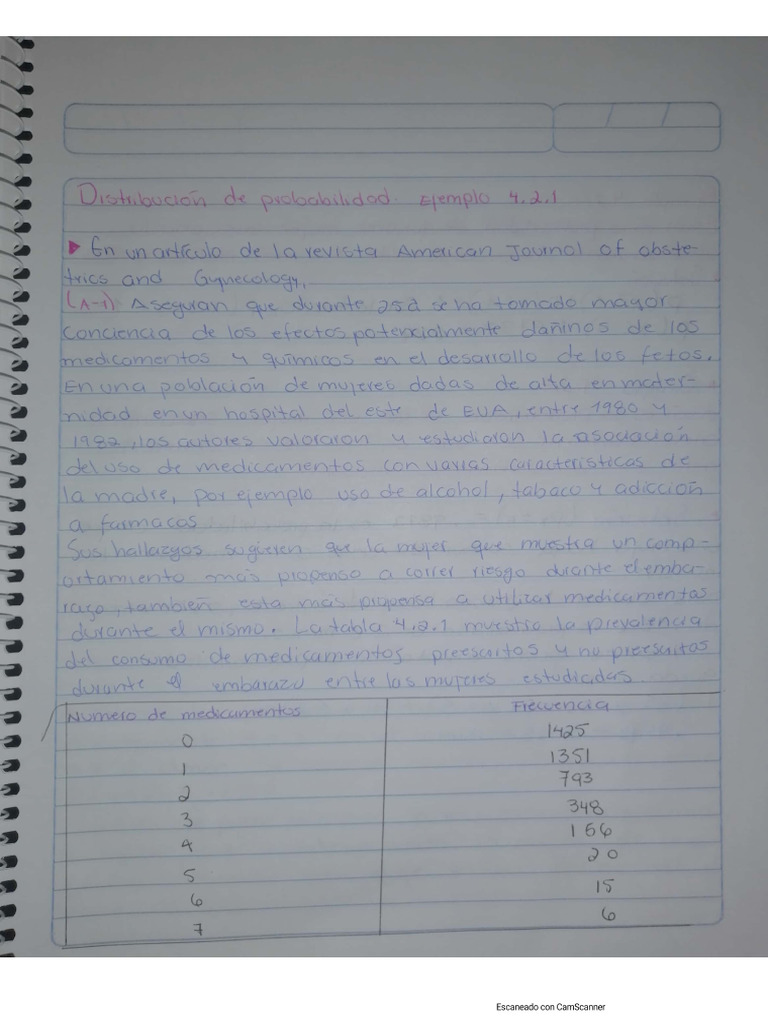 Distribución de probabilidad. Ejemplo 4.2.1
▶ En un artículo de la revista American Journal of obste-
trics and Gynecology,
(A-1) Aseguran que durante 25a se ha tomado mayor
Conciencia de los efectos potencialmente dañinos de los
medicamentos y químicos en el desarrollo de los fetos.
En una población de mujeres dadas de alta en mater-
nidad en un hospital del este de EUA, entre 1980 y
1982, los autores valoraron y estudiaron la asociación
del uso de medicamentos con varias características de
la madre, por ejemplo uso de alcohol, tabaco y adicción
a farmacos
Sus hallazgos sugieren que la mujer que muestra un comp-
ortamiento más propenso a correr riesgo durante el emba-
razo, también esta más propensa a utilizar medicamentos
durante el mismo. La tabla 4.2.1 muestra la prevalencia
del consumo de medicamentos preescritos y no preescritos
durante el embarazo entre las mujeres estudiadas
Numero de medicamentos Frecuencia
0 1425
1 1351
2 793
3 348
4 156
5 20
6 15
7 6
Escaneado con CamScanner